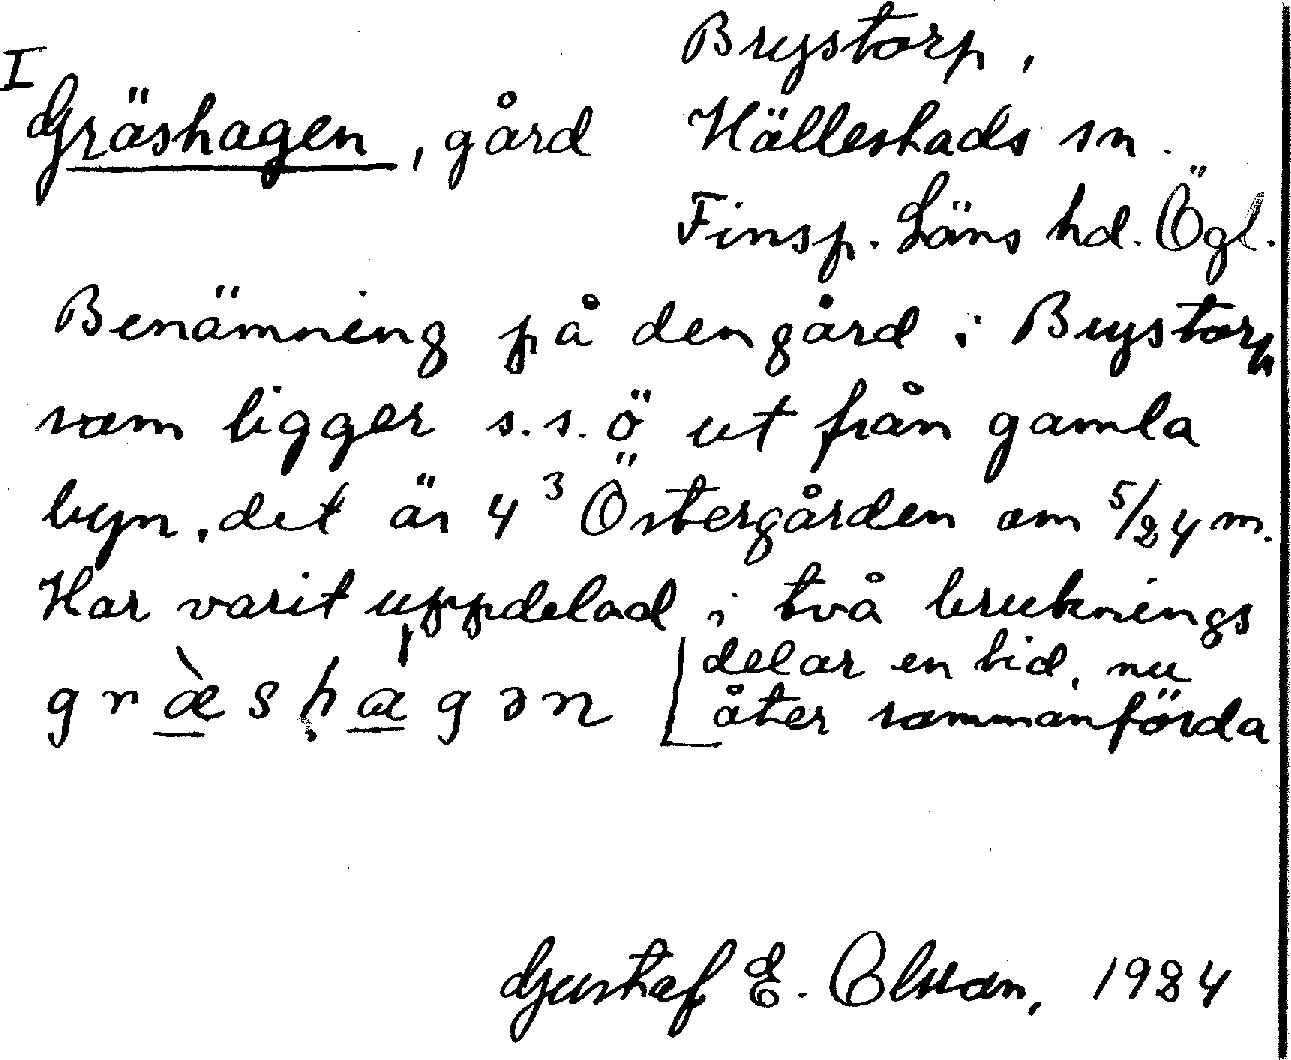 I
Brystorp,
Gräshagen, gård
Hällestads sn.
Finsp. Läns hd. Ögl.
Benämning på den gård i Brystorp
som ligger s.s.ö ut från gamla
byn, det är 4³ Östergården om 5/24 m.
Har varit uppdelad i två bruknings
delar en tid, nu
åter sammanförda
græ̀shagən
Gustaf E. Olsson, 1924